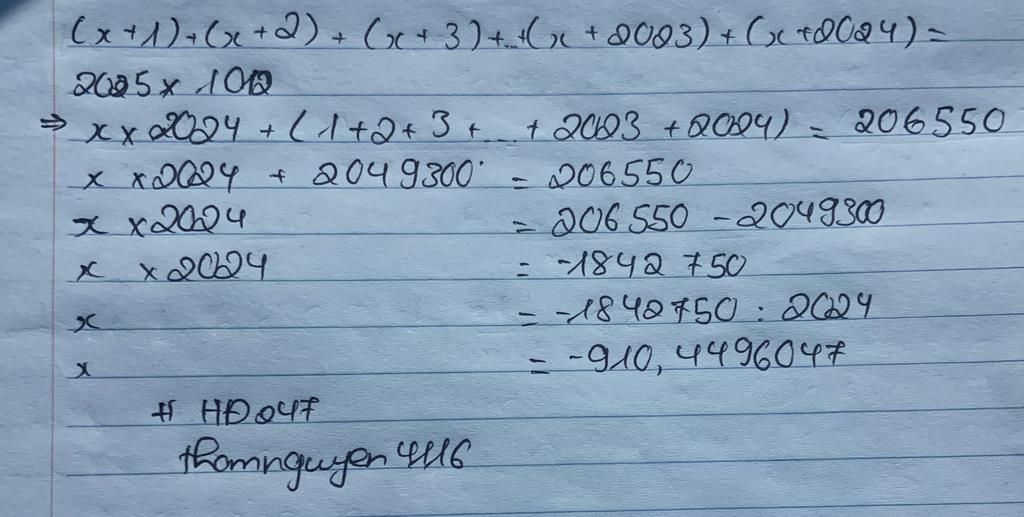 (x+1)+(x+2)+(x+3)+...+(x+2023)+(x+2024)=
2025x 102
⇒ x x2024 + (1+2+3+...+2023+2024) = 206550
x x2024 + 2049300 = 206550
x x2024 = 206550 - 2049300
x x2024 = -1842750
x = -1842750 : 2024
x = -910,4496047
# HĐ247
thomnguyen4116